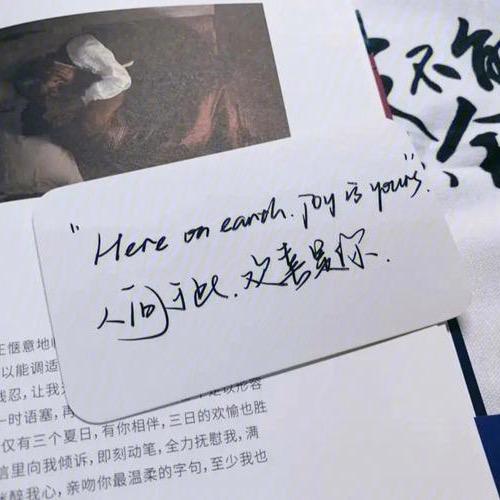 不能
全
"Here on earth. Joy is yours".
人间于此. 欢喜是你.
在惬意地
以能调适
残忍, 让我
一时语塞, 再 足以形容
仅有三个夏日, 有你相伴, 三日的欢愉也胜
信里向我倾诉, 即刻动笔, 全力抚慰我, 满
迷醉我心, 亲吻你最温柔的字句, 至少我也